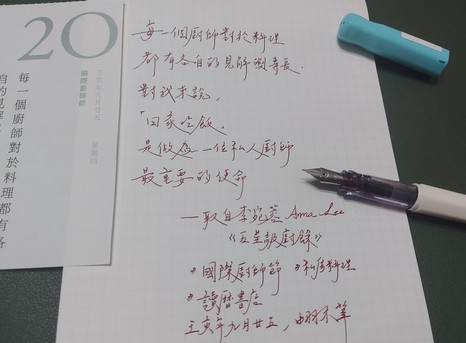 20
國際廚師節
星期四
每一個廚師對於料理都有各
自的見解
每一個廚師對於料理
都有各自的見解與專長
對我來說，
「回家吃飯」
是做為一位私人廚師
最重要的使命
—取自李宛蓉 Ama Lee
《五星級廚錄》
#國際廚師節 #私房料理
#讀曆書店
壬寅年九月廿五，